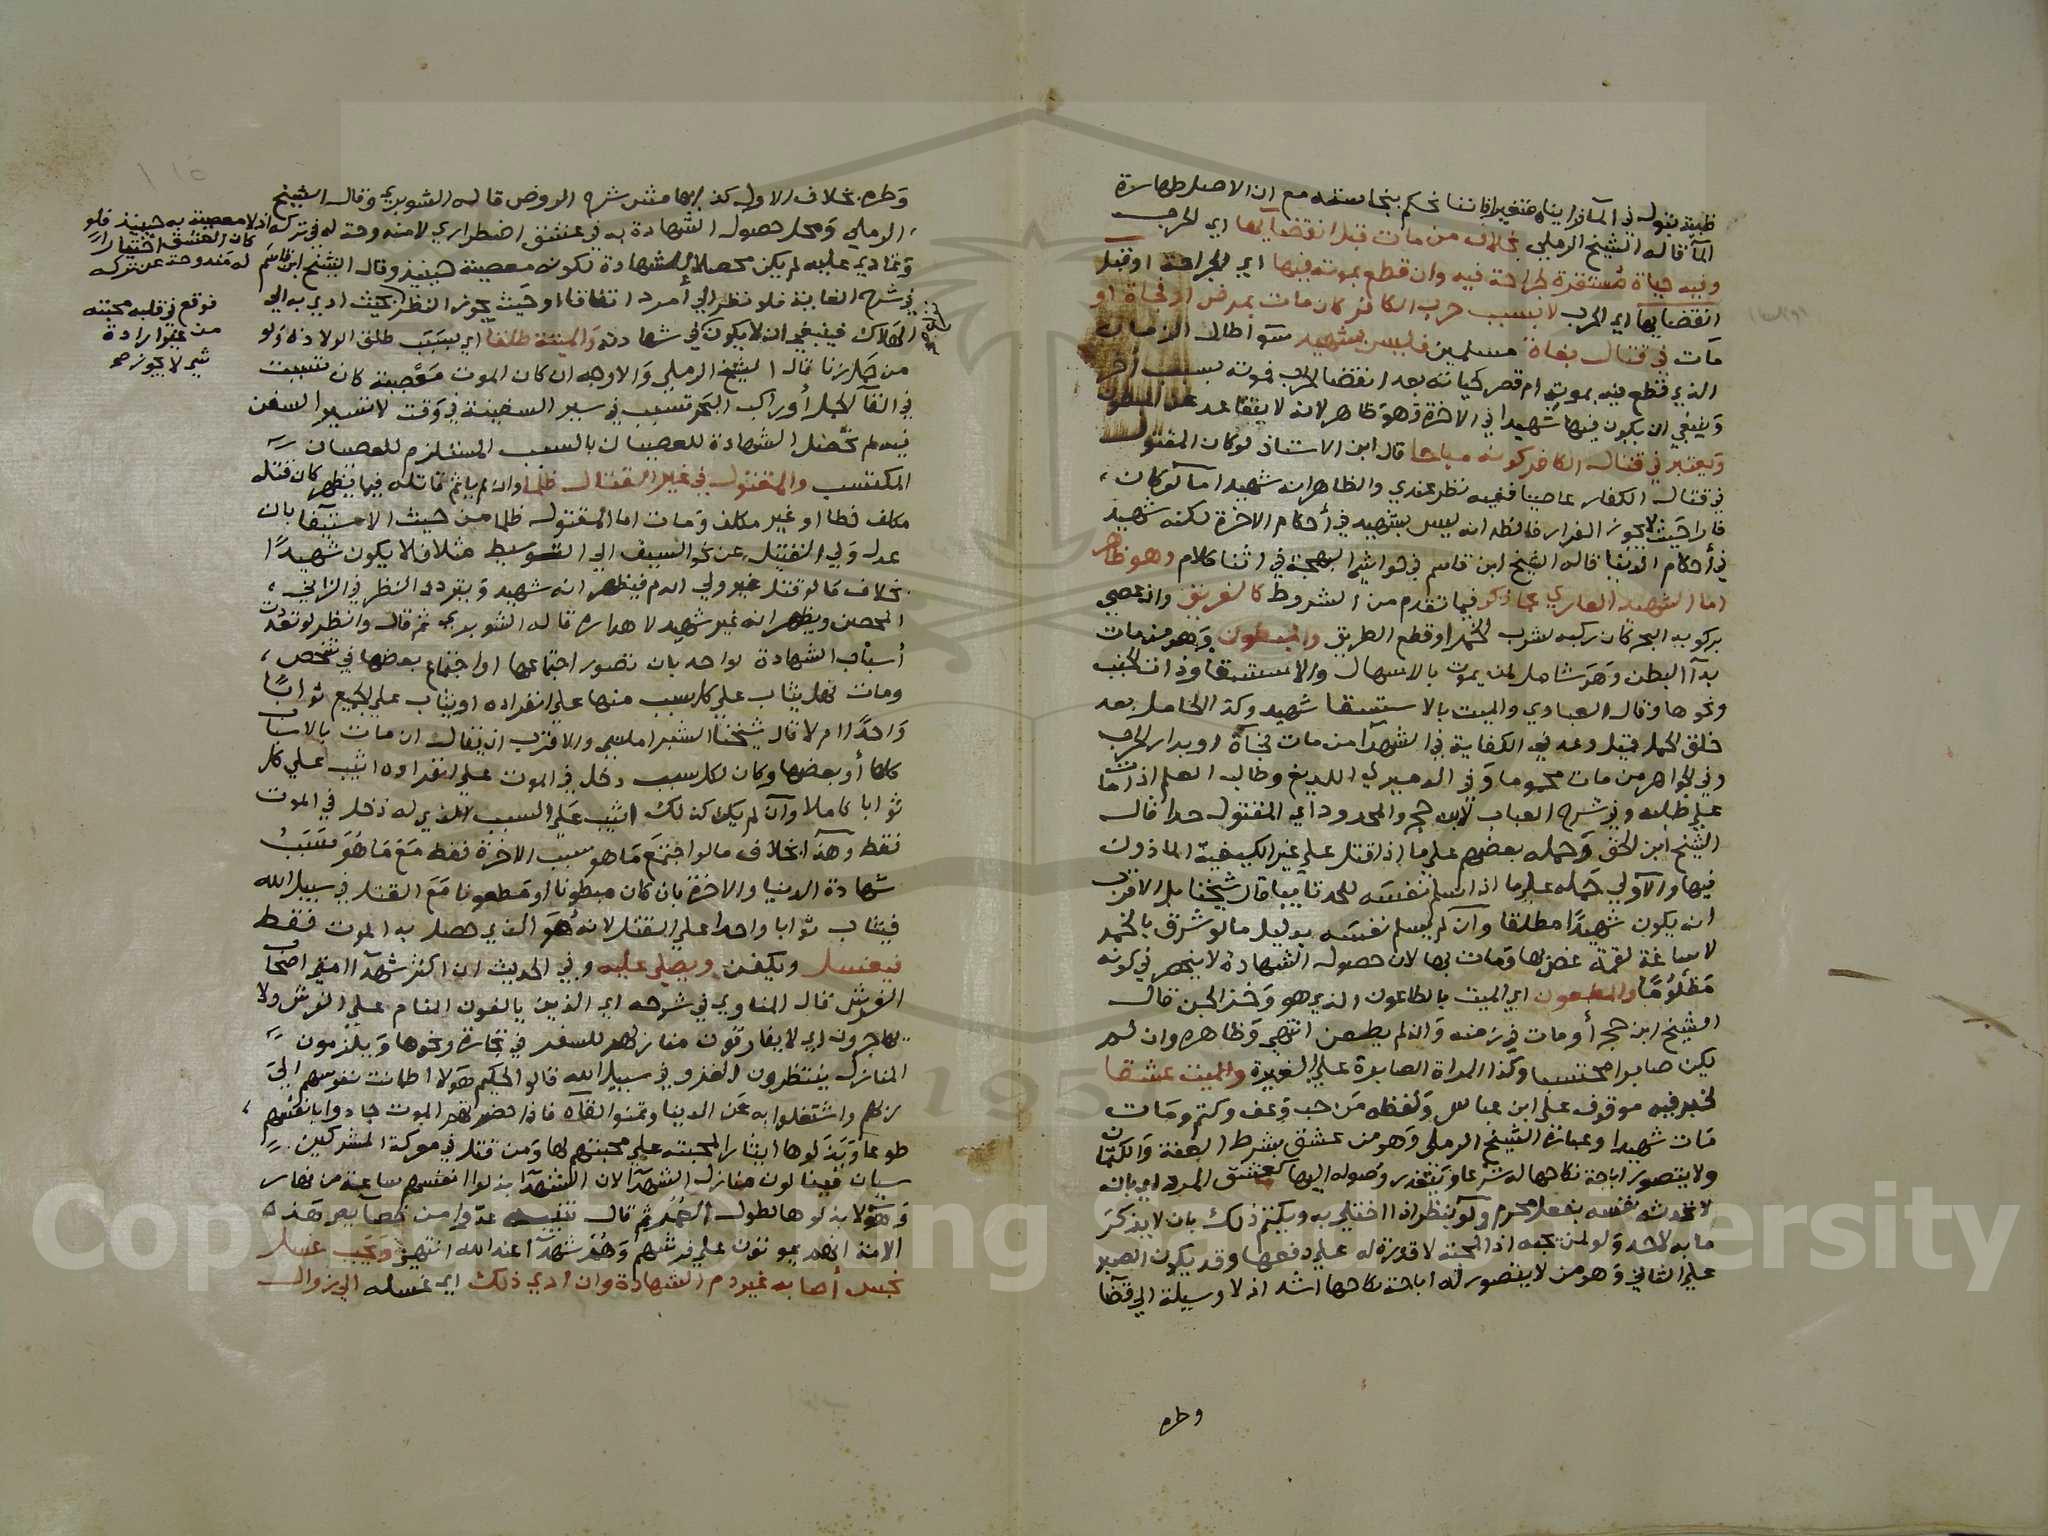 ظبية تبول في الماء فرايناه متغيرا فاننا نحكم بنجاسته مع ان الاصل طهارة
الماء قاله الشيخ الرملي بخلاف من مات قبل انقضايها اي الحرب
وفيه حياة مستقرة لجراحة فيه وان قطع بموته فيها اي الجراحة او قبل
انقضايها اي الحرب لا بسبب حرب الكافر كان مات بمرض او فجاة او
مات في قتال بغاة مسلمين فليس بشهيد سوا طال الزمان
الذي قطع فيه بموته ام قصر كحياته بعد انقضا الحرب فموته بسبب اخر
وينبغي ان يكون فيها شهيدا في الاخرة وهو ظاهر لانه لا يتقاعد عن المبطون
ويعتبر في قتال الكافر كونه مباحا قال ابن الاستاذ لو كان المقتول
في قتال الكفار عاصيا ففيه نظر عندي والظاهر انه شهيد اما لو كان
فارا حيث لا يجوز الفرار فالظاهر انه ليس بشهيد في أحكام الاخرة لكنه شهيد
في أحكام الدنيا قاله الشيخ ابن قاسم في حواشي البهجة في اثنا كلام وهو ظاهر
اما الشهيد العاري عما ذكر فيما تقدم من الشروط كالغريق وان عصي
بركوبه البحر كان ركبه لشرب الخمر او قطع الطريق والمبطون وهو من مات
بداء البطن وهو شامل لمن يموت بالاسهال والاستسقا وذات الجنب
ونحوها وقال العبادي والميت بالاستسقا شهيد وكذا الحامل بعد
خلق الحمل قبل وعد في الكفاية في الشهدا من مات فجأة او بدار الحرب
وفي الجواهر من مات محموما وفي الدميري اللديغ وطالب العلم اذا مات
علي طلبه وفي شرح العباب لابن حجر والمحدود اي المقتول حدا قال
الشيخ ابن الحق وحمله بعضهم علي ما اذا قتل علي غير الكيفية الماذون
فيها والأولي حمله علي ما اذا سلم نفسه للحد تائبا قال شيخنا بل الاقرب
انه يكون شهيدا مطلقا وان لم يسلم نفسه بدليل ما لو شرق بالخمر
لاساغة لقمة غص بها ومات بها لان حصول الشهادة لا ينحصر في كونه
مظلوما والمطعون اي الميت بالطاعون الذي هو وخز الجن قال
الشيخ ابن حجر أو مات في زمنه وان لم يطعن انتهي وظاهره وان لم
يكن صابرا محتسبا وكذا المراة الصابرة علي الغيرة والميت عشقا
لخبر فيه موقوف علي ابن عباس ولفظه من احب وعف وكتم ومات
مات شهيدا وعبارة الشيخ الرملي وهو من عشق بشرط العفة والكتمان
ولا يتصور اباحة نكاحها له شرعا ويتعذر وصوله اليها كعشق المرد اي بان
لا تحدثه نفسه بفعل محرم ولو بنظر اذا اختلي به ويكتم ذلك بان لا يذكر
ما به لاحد ولو لمن يحبه اذ المحبة لا قدرة له علي دفعها وقد يكون الصبر
علي الثاني وهو من لا يتصور له اباحة نكاحها اشد اذ لا وسيلة الي قضا
وطره
وطره بخلاف الاول كذا بهامش شرح الروض قاله الشوبري وقال الشيخ
الرملي ومحل حصول الشهادة به في عشق اضطراري لا مندوحة له في تركه اذ لا معصية به حينئذ فلو
كان العشق اختياراي
له مندوحة عن تركه
وتمادي عليه لم يكن محصلا للشهادة لكونه معصية حينئذ وقال الشيخ ابن قاسم
في شرح الغاية فلو نظر الي أمرد اتفاقا او حيث يجوز النظر بحيث ادي به الي
الهلاك فينبغي ان لا يكون في شهادته والميتة طلقا اي بسبب طلق الولادة ولو
فوقع في قلبه محبته
من غير ارادة
شي لا يجوز صح
من حمل زنا قال الشيخ الرملي والاوجه ان كان الموت معصية كان تسببت
في القا الحمل أو راكب البحر تسبب في سير السفينة في وقت لا تسير السفن
فيه لم تحصل الشهادة للعصيان بالسبب المستلزم للعصيان
المكتسب والمقتول في غير القتال ظلما وان لم ياثم قاتله فيما يظهر كان قتله
مكلف خطا او غير مكلف ومات اما المقتول ظلما من حيث الاستيفا بان
عدل ولي القتيل عن نحو السيف الي التوسيط مثلا فلا يكون شهيدا
بخلاف ما لو قتل غير ولي الدم فيظهر انه شهيد ويتردد النظر في الزاني
المحصن ويظهر انه غير شهيد لاهداره قاله الشوبري ثم قال وانظر لو تعددت
أسباب الشهادة لواحد بان تصور اجتماعها او اجتماع بعضها في شخص
ومات فهل يثاب علي كل سبب منها علي انفراده او يثاب علي الجميع ثوابا
واحدا ام لا قال شيخنا الشبراملسي والاقرب ان يقال ان مات بالاسباب
كلها أو بعضها وكان لكل سبب دخل في الموت علي انفراده اثيب علي كل
ثوابا كاملا وان لم يكن كذلك اثيب علي السبب الذي له دخل في الموت
فقط وهذا بخلاف ما لو اجتمع ما هو سبب الاخرة فقط مع ما هو سبب
شهادة الدنيا والاخرة بان كان مبطونا او مطعونا مع القتل في سبيل الله
فيثاب ثوابا واحدا علي القتل لانه هو الذي حصل به الموت فقط
فيغسل ويكفن ويصلي عليه وفي الحديث ان اكثر شهدا امتي اصحاب
الفرش قال المناوي في شرحه اي الذين يالفون المنام علي الفرش ولا
يهاجرون اي لا يفارقون منازلهم للسفر في تجارة ونحوها ويلزمون
المنازل ينتظرون الغزو في سبيل الله قالوا الحكيم هولا اطمانت نفوسهم الي
ربهم واشتغلوا به عن الدنيا وتمنوا لقاه فاذا حضرهم الموت جادوا بانفسهم
طوعا وبذلوها ايثارا لمحبته علي محبتهم لها ومن قتل في معركة المشركين
سيان فينالون منازل الشهدا لان الشهدا بذلوا انفسهم ساعة من نهار
وهؤلا بذلوها طول العمر ثم قال تنبيه عدوا من خصايص هذه
الامة انهم يموتون علي فرشهم وهم شهدا عند الله انتهي ويجب غسل
نجس أصابه غير دم الشهادة وان ادي ذلك اي غسله الي زوال
Copyright © King Saud University
195